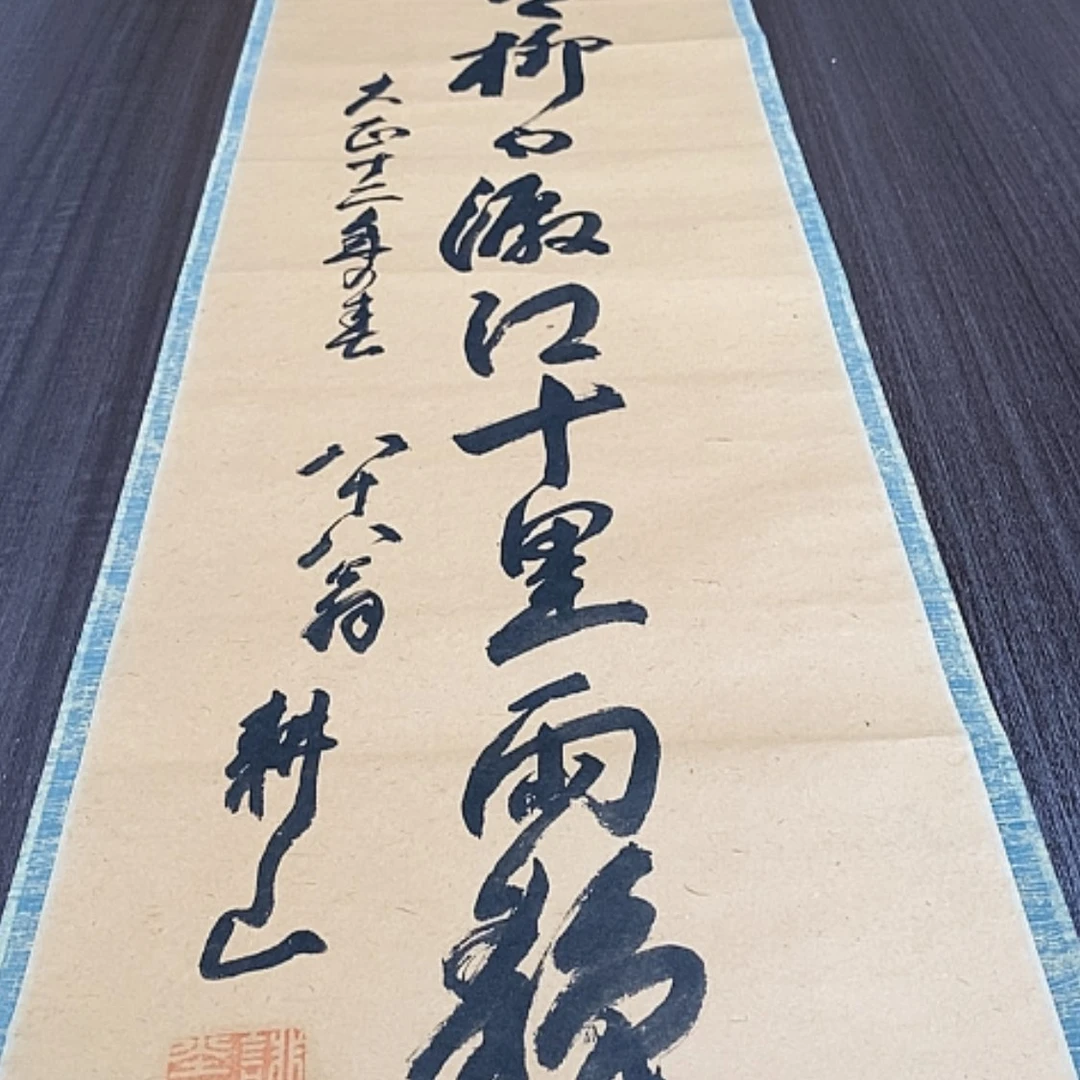 柳や澱江十里雨静
大正十二年の春
八十八翁
耕山